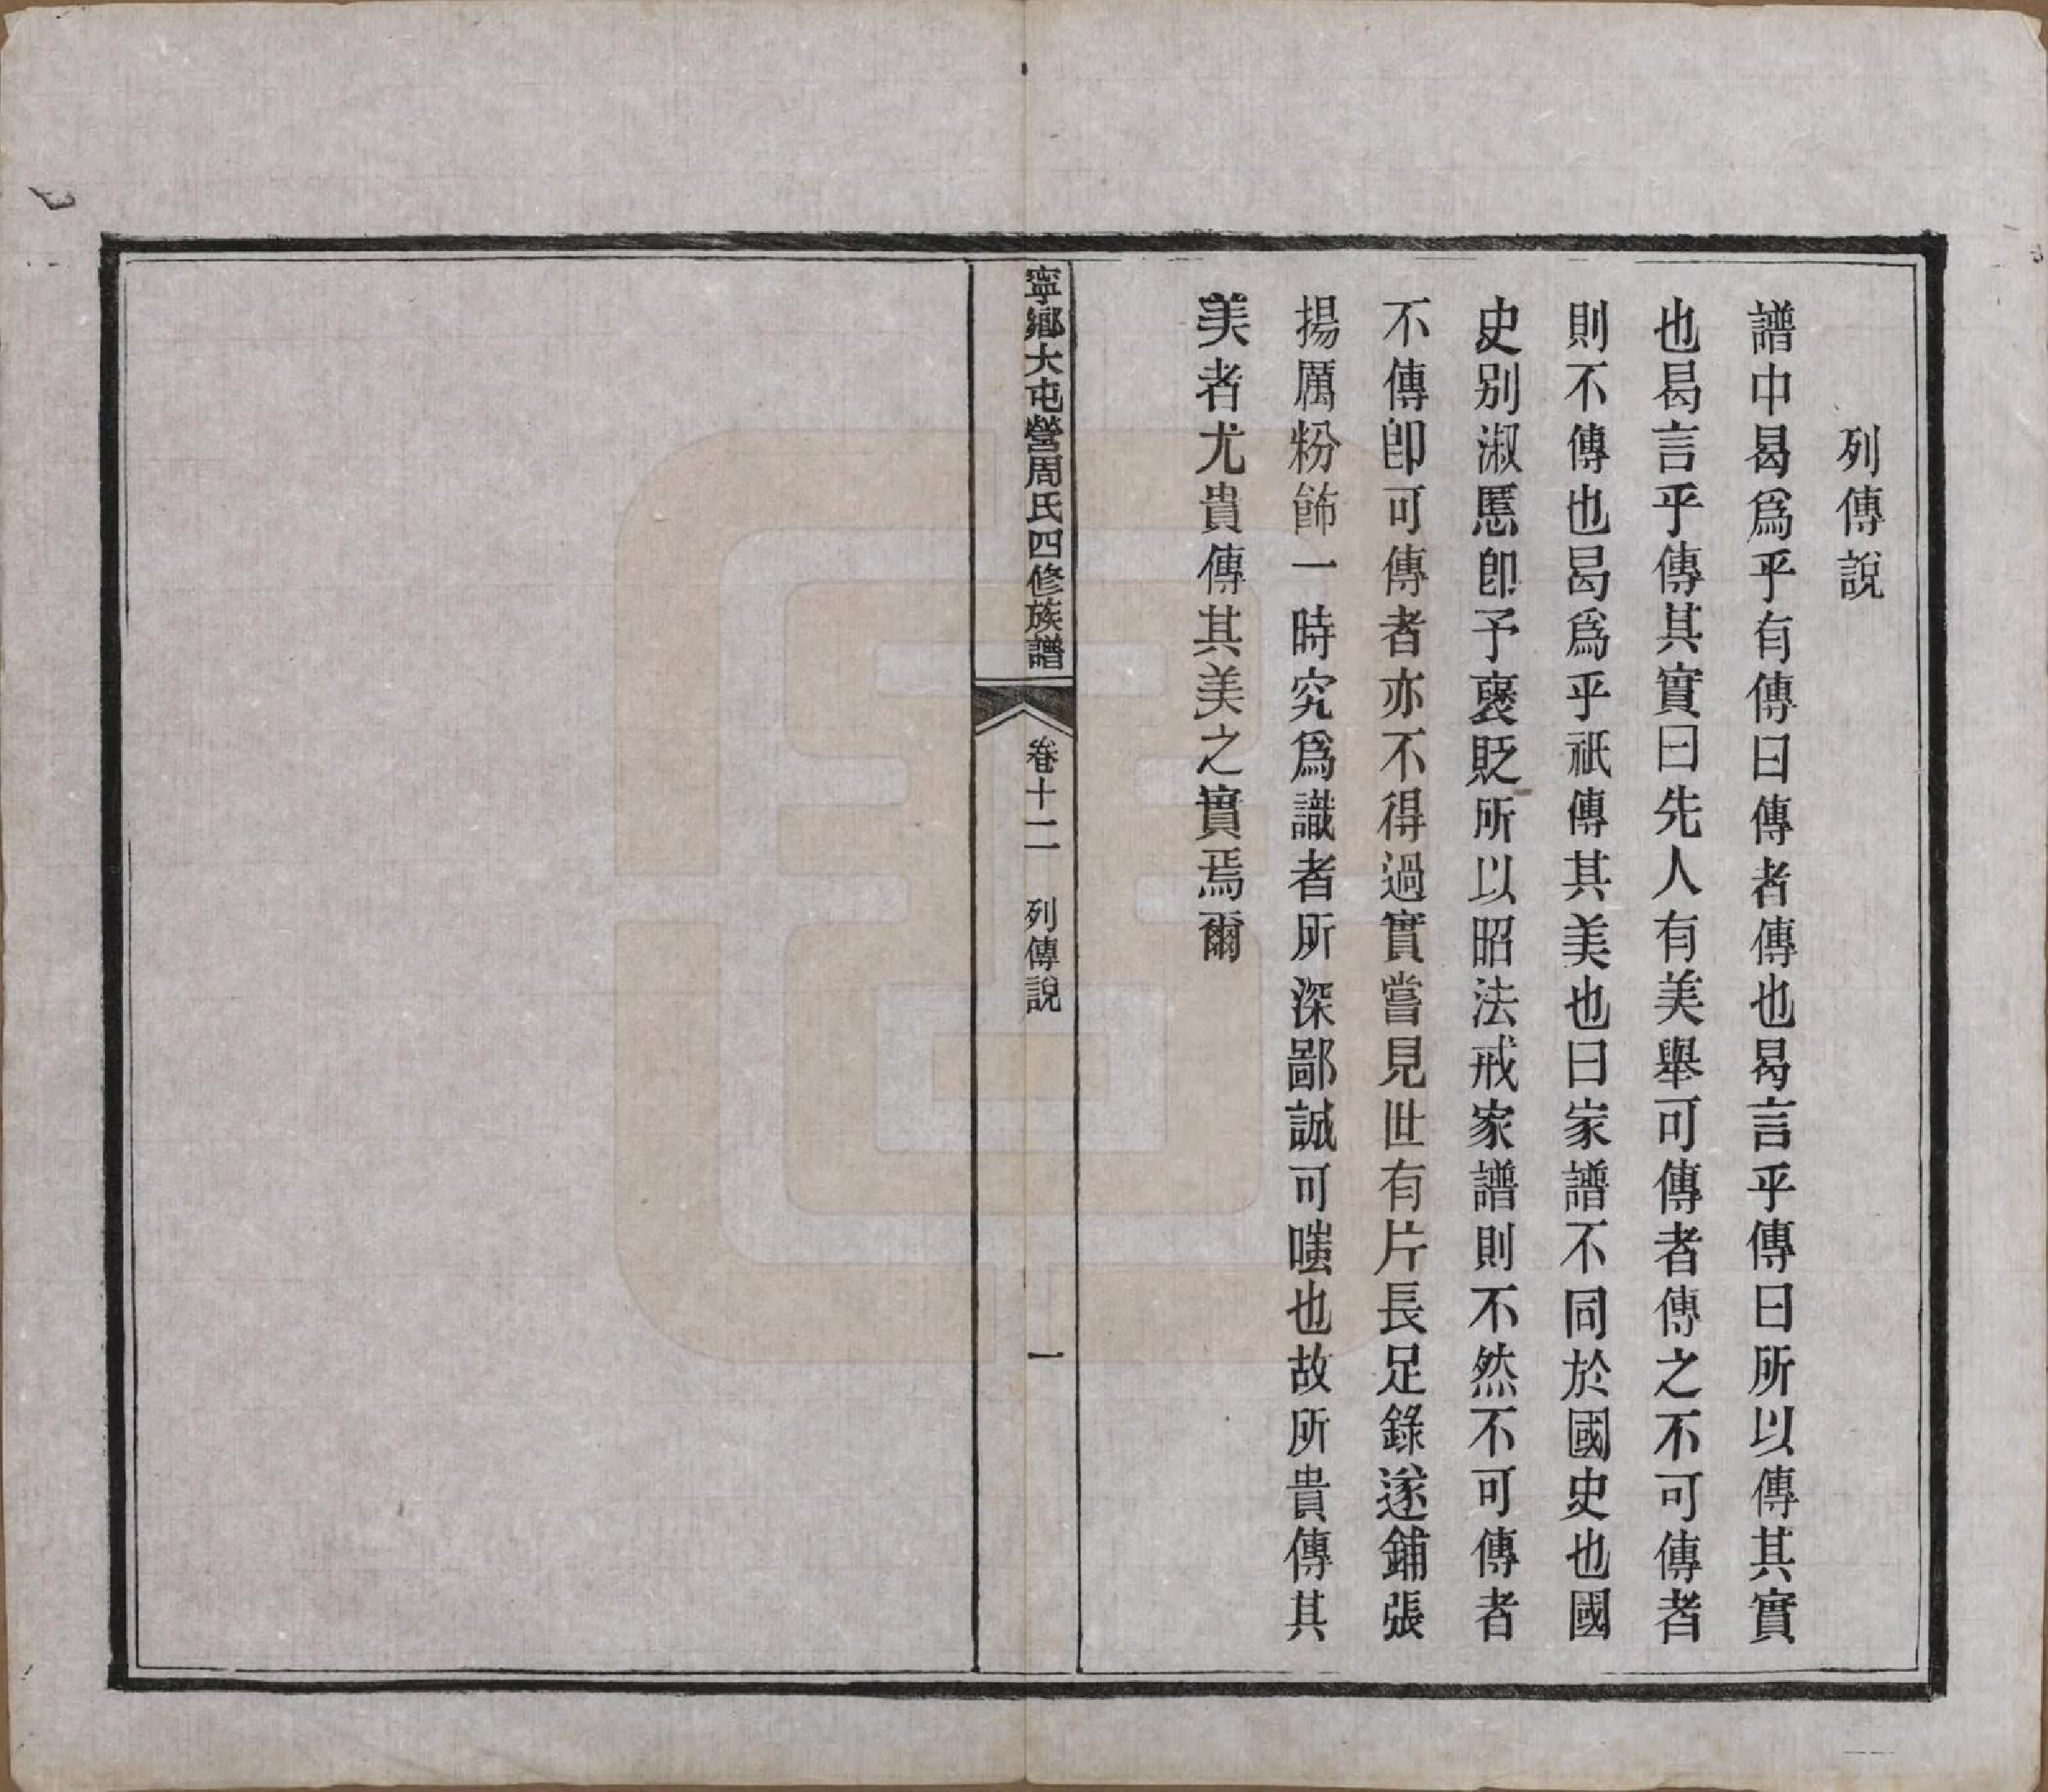 列傳說
譜中曷爲乎有傳曰傳者傳也曷言乎傳曰所以傳其實
也曷言乎傳其實曰先人有美舉可傳者傳之不可傳者
則不傳也曷爲乎祇傳其美也曰家譜不同於國史也國
史别淑慝卽予褒貶所以昭法戒家譜則不然不可傳者
不傳卽可傳者亦不得過實嘗見世有片長足錄遂鋪張
揚厲粉飾一時究爲識者所深鄙誠可嗤也故所貴傳其
美者尤貴傳其美之實焉爾
寧鄉大屯營周氏四修族譜
卷十二 列傳說 一